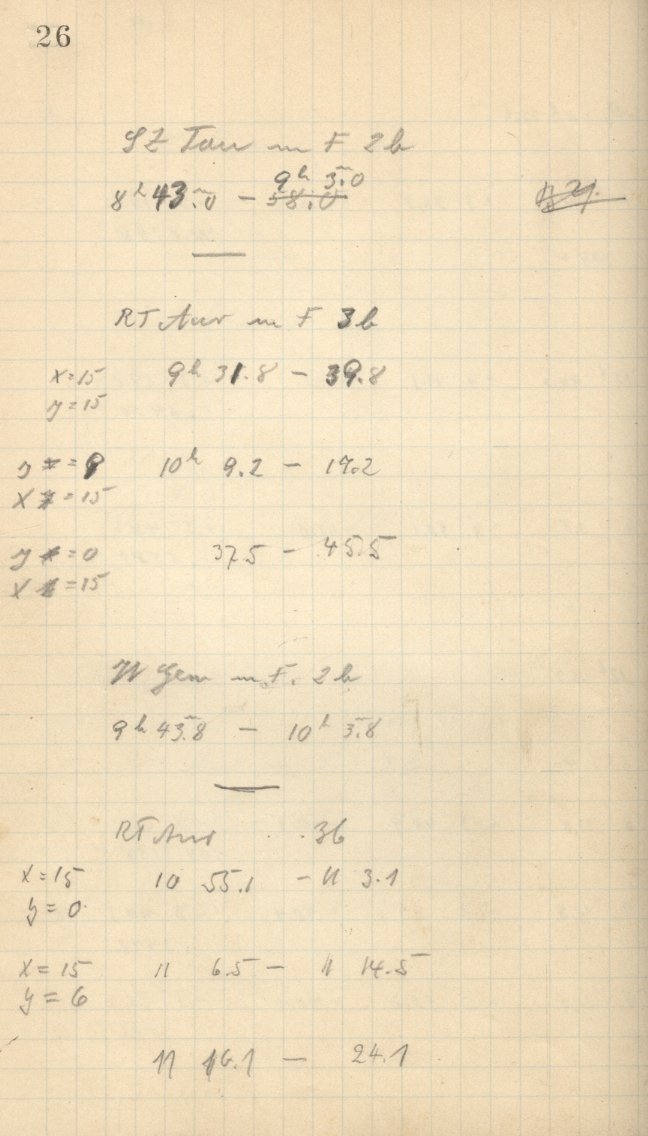 26
SZ Tau m F 2b
9h 5.0
8h 43.0 — 58.0
RT Aur m F 3b
x=15 9h 31.8 — 39.8
y=15
y = 9 10h 9.2 — 17.2
x = 15
y = 0 37.5 — 45.5
x = 15
W Gem m F. 2b
9h 45.8 — 10h 5.8
RT Aur . 3b
x=15 10 55.1 — 11 3.1
y=0
x=15 11 6.5 — 11 14.5
y=6
11 16.1 — 24.1